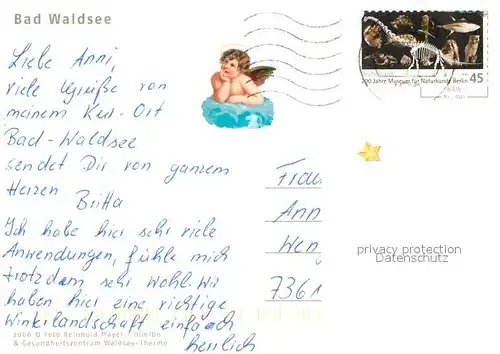 Bad Waldsee
Liebe Anni,
viele Grüße von
meinem Kur-Ort
Bad-Waldsee
sendet Dir von ganzem
Herzen
Britta
Ich habe hier sehr viele
Anwendungen, fühle mich
trotzdem sehr wohl. Wir
haben hier eine richtige
Winterlandschaft einfach
herrlich
200 Jahre Museum für Naturkunde Berlin
45
Frau
Ann
Wen
7361
privacy protection
Datenschutz
2006 © Foto Reinhold Mayer
& Gesundheitszentrum Waldsee-Therme